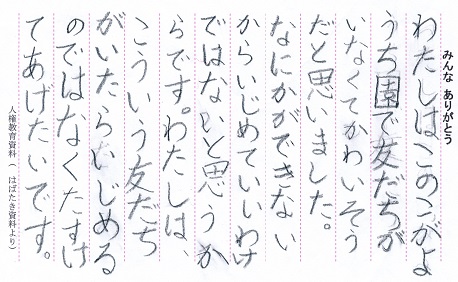 みんな ありがとう
わたしはこのこがよ
うち園で友だちが
いなくてかわいそう
だと思いました。
なにかができない
からいじめていいわけ
ではないと思うか
らです。わたしは、
こういう友だち
がいたらいじめる
のではなくたすけ
てあげたいです。
人権教育資料( はばたき資料より)